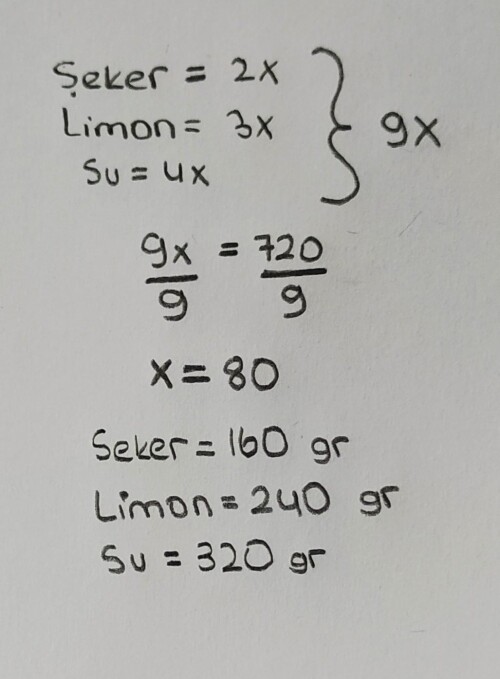 Şeker = 2x
Limon = 3x
Su = 4x
} 9x
9x/9 = 720/9
x = 80
Seker = 160 gr
Limon = 240 gr
Su = 320 gr